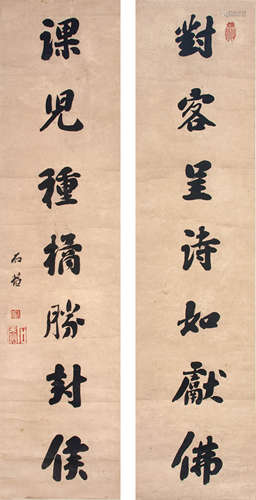 對客呈诗如獻佛
课児種橘勝封侯
石菴